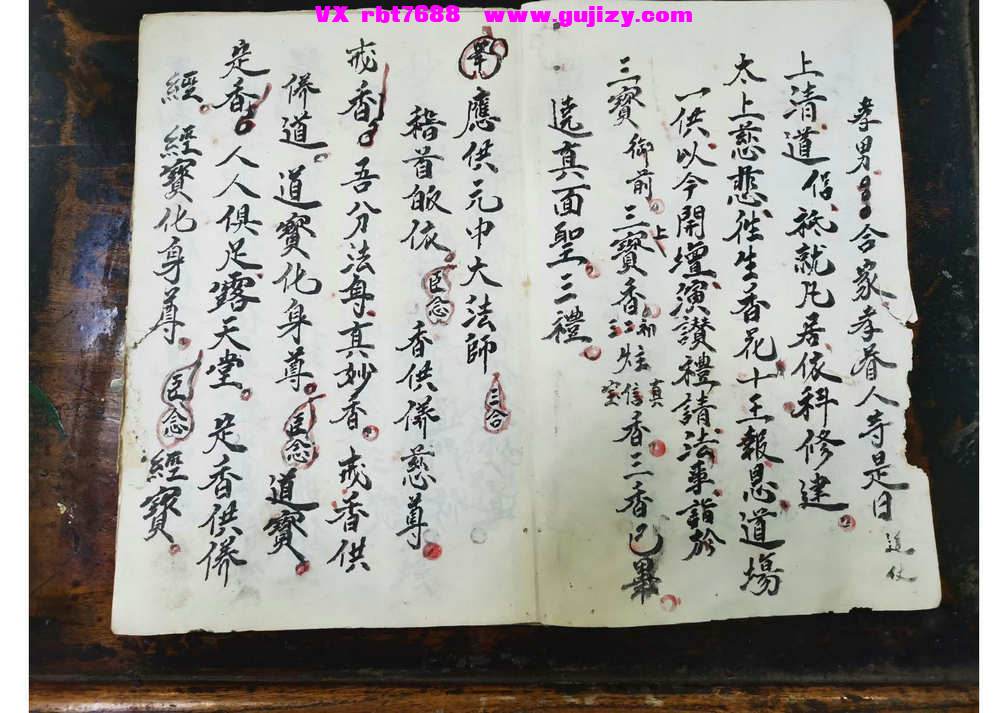 VX rbt7688 www.gujizy.com
孝男厶厶合家孝眷人等是日
上清道侣祗就凡居依科修建
太上慈悲徃生香花十王報恩道塲
一供以今開壇演讃禮請法事詣於
三寶御前三寶上香初炷真香二炷信香三香已畢
遶真面聖三禮
應供元中大法師 三合
稽首皈依 臣念 香供俻慈尊
戒香 吾分法身真妙香 戒香供
俻道 道寶化身尊 臣念 道寶
定香 人人俱足露天堂 定香供俻
經 經寶化身尊 臣念 經寶